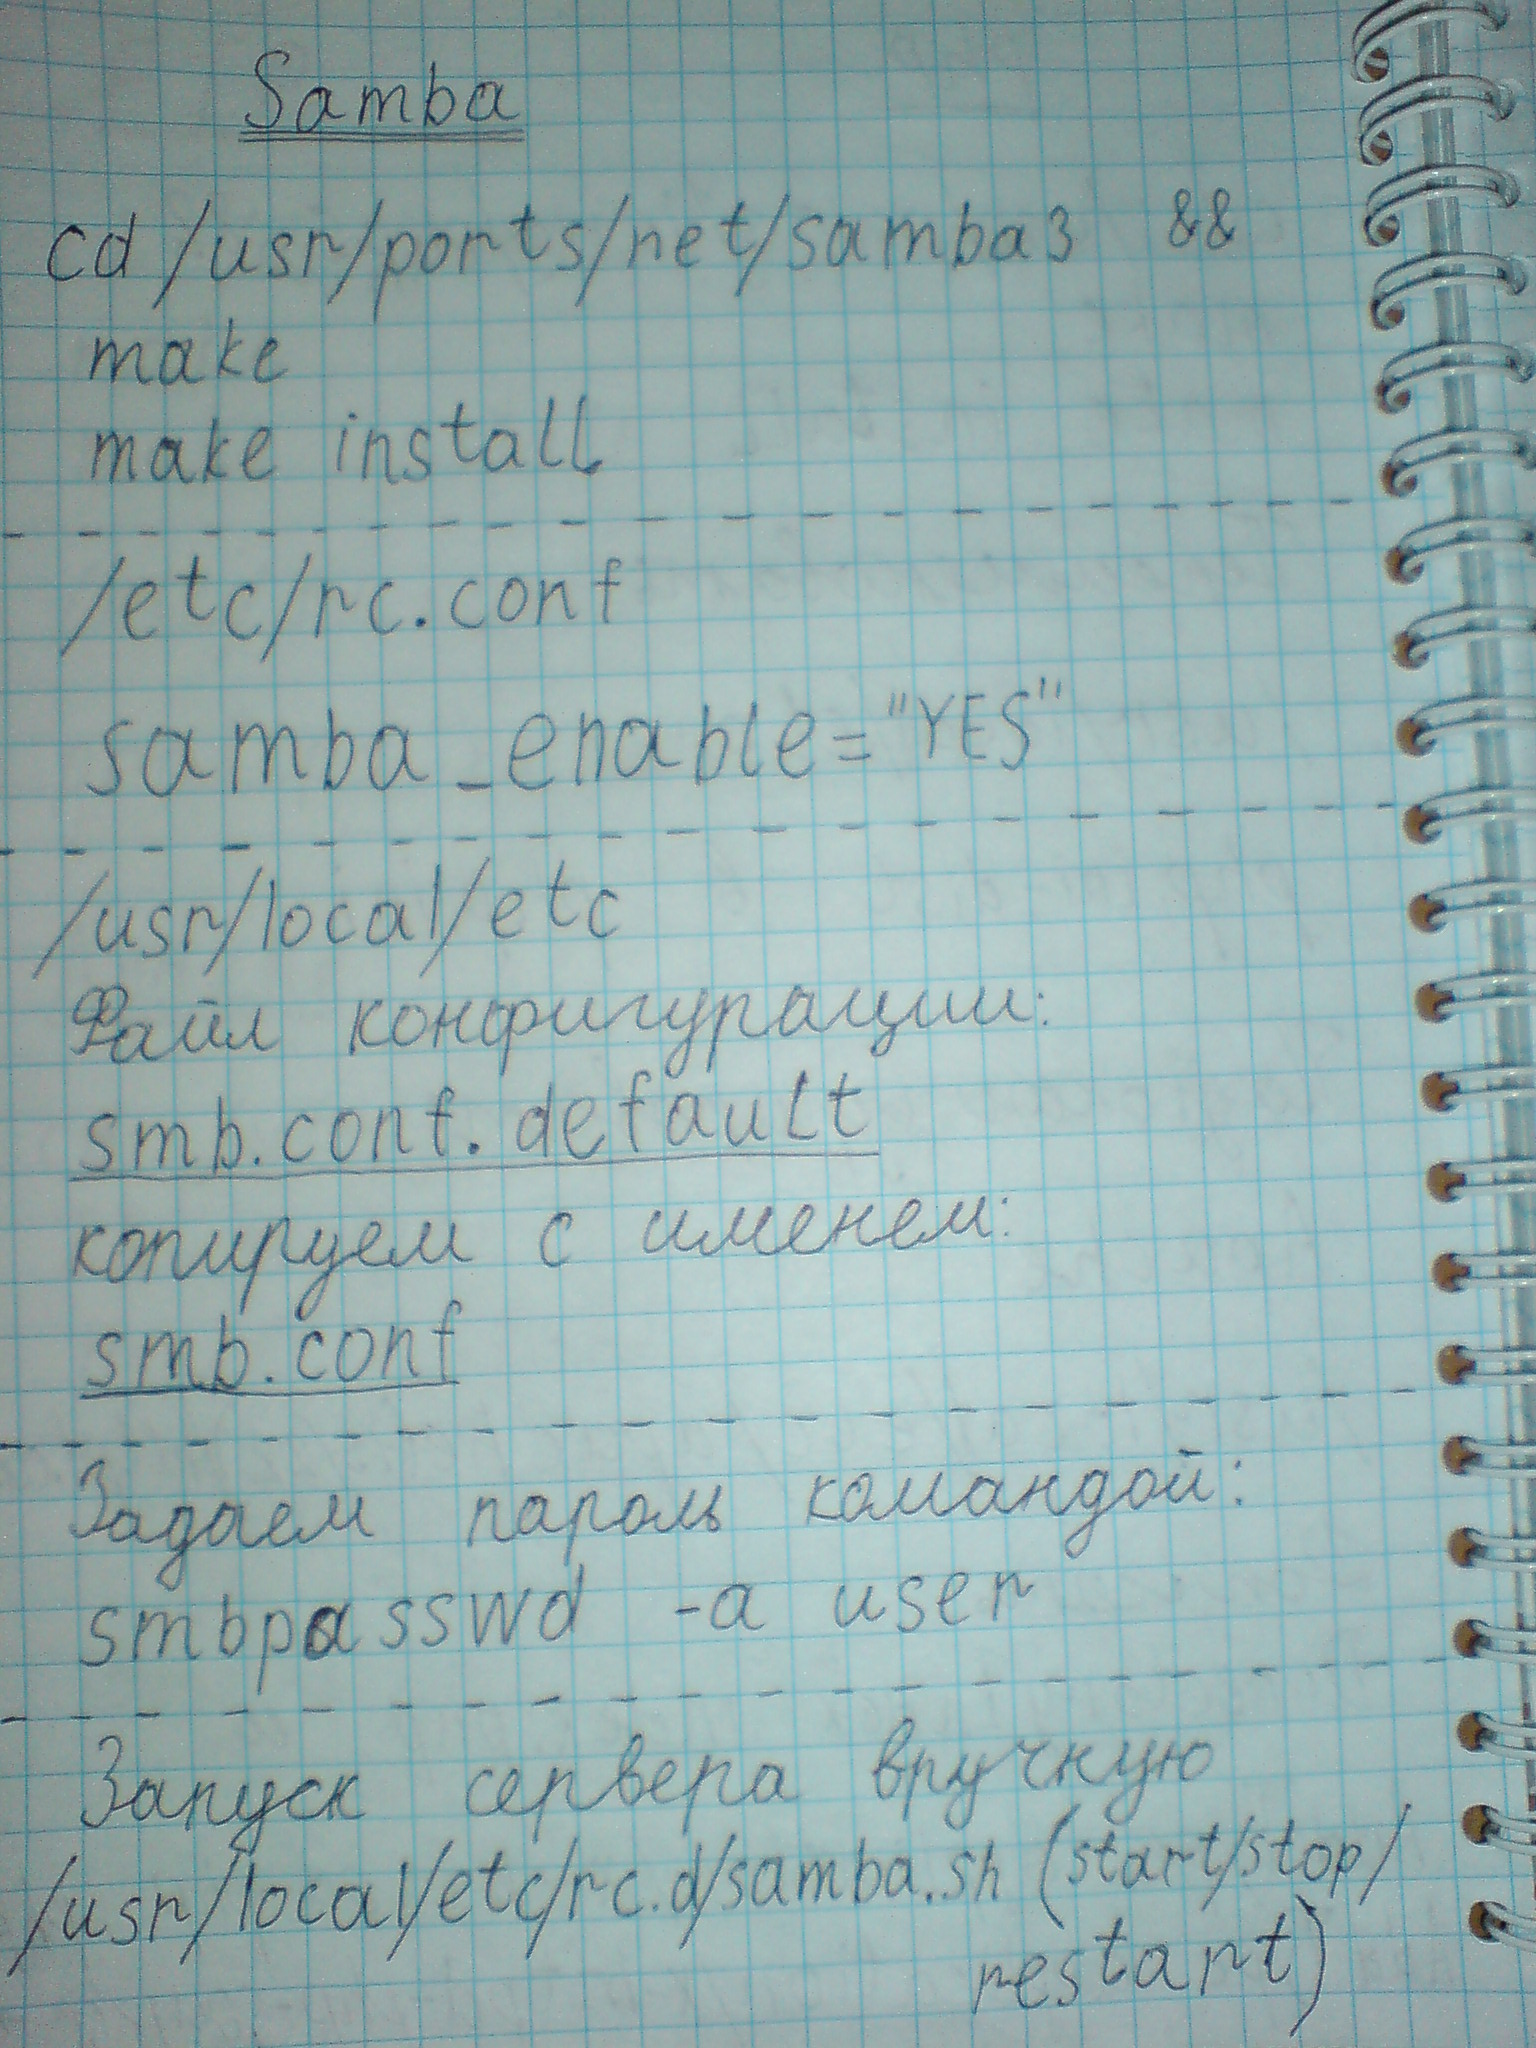 Samba
cd /usr/ports/net/samba3 &&
make
make install
/etc/rc.conf
samba_enable="YES"
/usr/local/etc
Файл конфигурации:
smb.conf.default
копируем с именем:
smb.conf
Задаем пароль командой:
smbpasswd -a user
Запуск сервера вручную
/usr/local/etc/rc.d/samba.sh (start/stop/
restart)